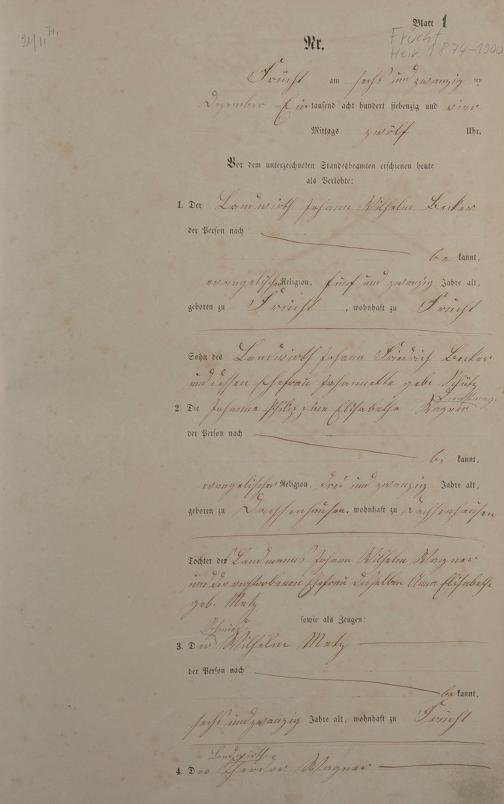 Blatt 1
Nr.
Frücht
Heir. 1874-1900
Frücht am sechs und zwanzig ten
Dezember Ein tausend acht hundert siebenzig und vier
Mittags zwölf Uhr.
Vor dem unterzeichneten Standesbeamten erschienen heute
als Verlobte:
1. Der Landwirth Johann Wilhelm Becker
der Person nach
be kannt,
evangelischer Religion, fünf und zwanzig Jahre alt,
geboren zu Frücht, wohnhaft zu Frücht
Sohn des Landwirth Johann Friedrich Becker
und dessen Ehefrau Johannette geb. Schütz
2. Die Johanna Philippine Elisabethe Wagner
der Person nach
be kannt,
evangelischer Religion, drei und zwanzig Jahre alt,
geboren zu Dachsenhausen, wohnhaft zu Dachsenhausen
Tochter des Landmanns Johann Wilhelm Wagner
und der verstorbenen Ehefrau desselben Anna Elisabethe
geb. Metz
sowie als Zeugen:
3. Der Wilhelm Metz
der Person nach
be kannt,
sechs und zwanzig Jahre alt, wohnhaft zu Frücht
Landwirth
4. Der Theodor Wagner